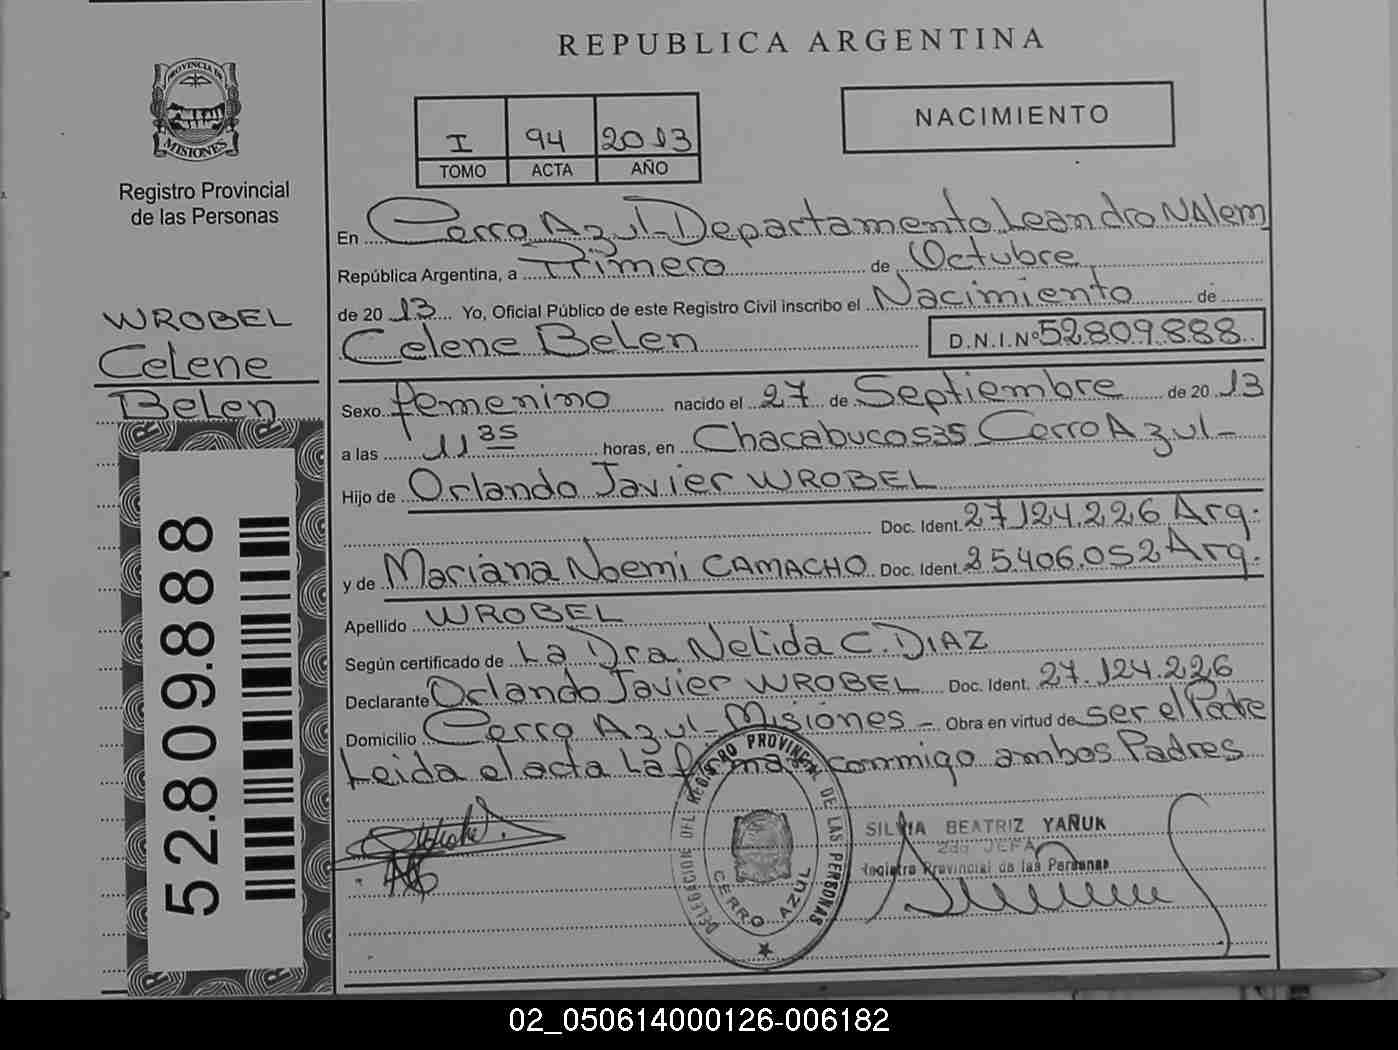 REPUBLICA ARGENTINA
PROVINCIA DE
MISIONES
Registro Provincial
de las Personas
I 94 2013
TOMO ACTA AÑO
NACIMIENTO
En Cerro Azul-Departamento Leandro N Alem
República Argentina, a Primero de Octubre
de 2013 Yo, Oficial Público de este Registro Civil inscribo el Nacimiento de
Celene Belen D.N.I.Nº 52.809.888
WROBEL
Celene
Belen
Sexo femenino nacido el 27 de Septiembre de 2013
a las 11 35 horas, en Chacabuco 535 Cerro Azul-
Hijo de Orlando Javier WROBEL
Doc. Ident. 27.124.226 Arg.
y de Mariana Noemi CAMACHO Doc. Ident. 25.406.052 Arg.
Apellido WROBEL
Según certificado de La Dra Nelida C. DIAZ
Declarante Orlando Javier WROBEL Doc. Ident. 27.124.226
Domicilio Cerro Azul-Misiones- Obra en virtud de ser el Padre
Leida el acta La firman conmigo ambos Padres
52.809.888
DELEGACION DEL REGISTRO PROVINCIAL DE LAS PERSONAS
CERRO AZUL
SILVIA BEATRIZ YAÑUK
2da JEFA
Registro Provincial de las Personas
02_050614000126-006182